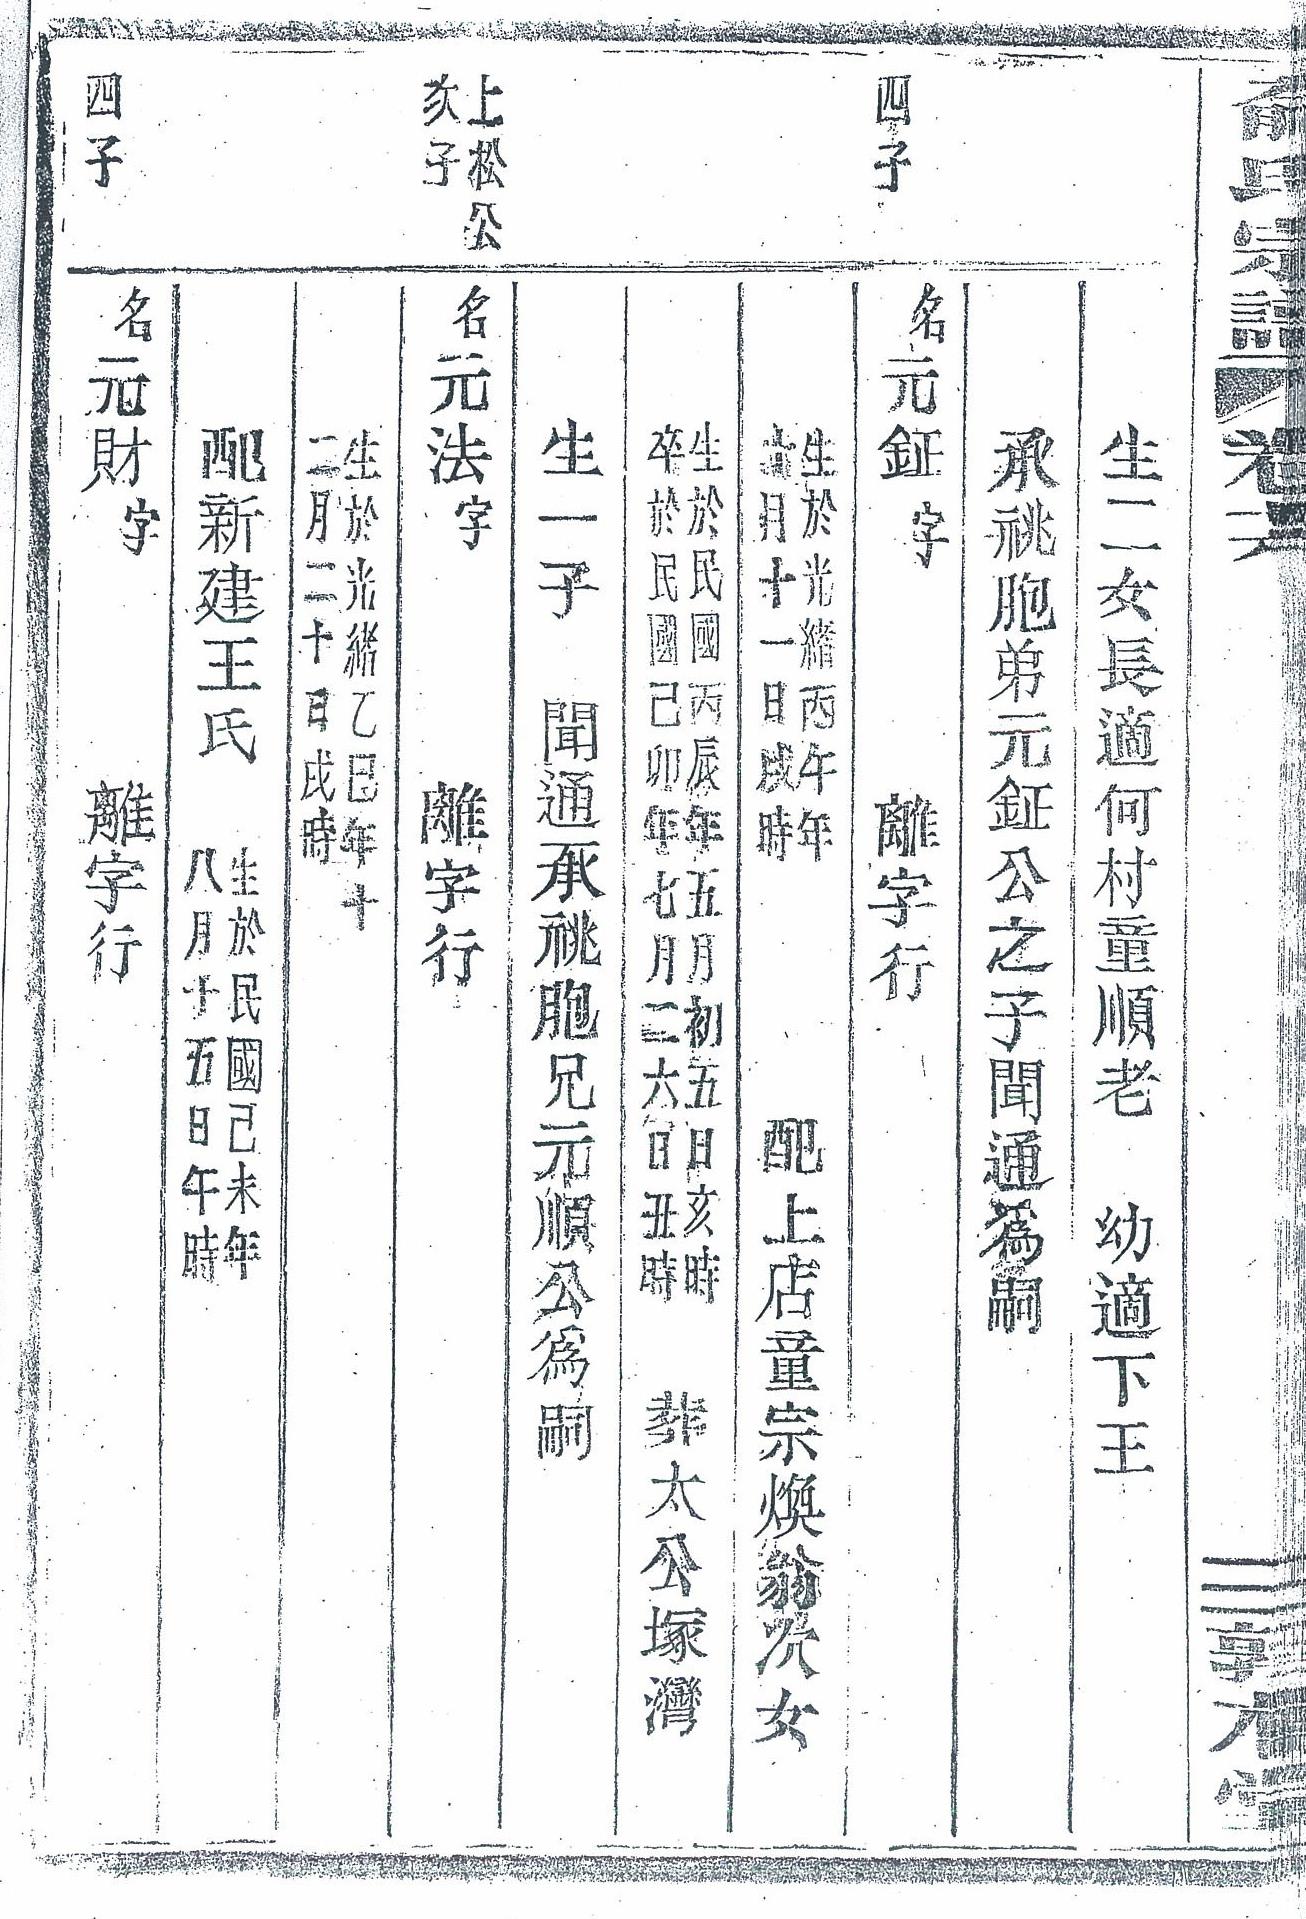 俞氏宗譜 卷六 三
生二女長適何村童順老 幼適下王
承祧胞弟元鉦公之子聞通爲嗣
四子
名元鉦字 離字行
生於光緒丙午年
月十一日戌時
配上店童宗煥翁次女
生於民國丙辰年五月初五日亥時
卒於民國己卯年七月二六日丑時
葬太公塚灣
生一子 聞通承祧胞兄元順公爲嗣
上松公
次子
名元法字 離字行
生於光緒乙巳年十
二月二十日戌時
配新建王氏
生於民國己未年
八月十五日午時
四子
名元財字 離字行